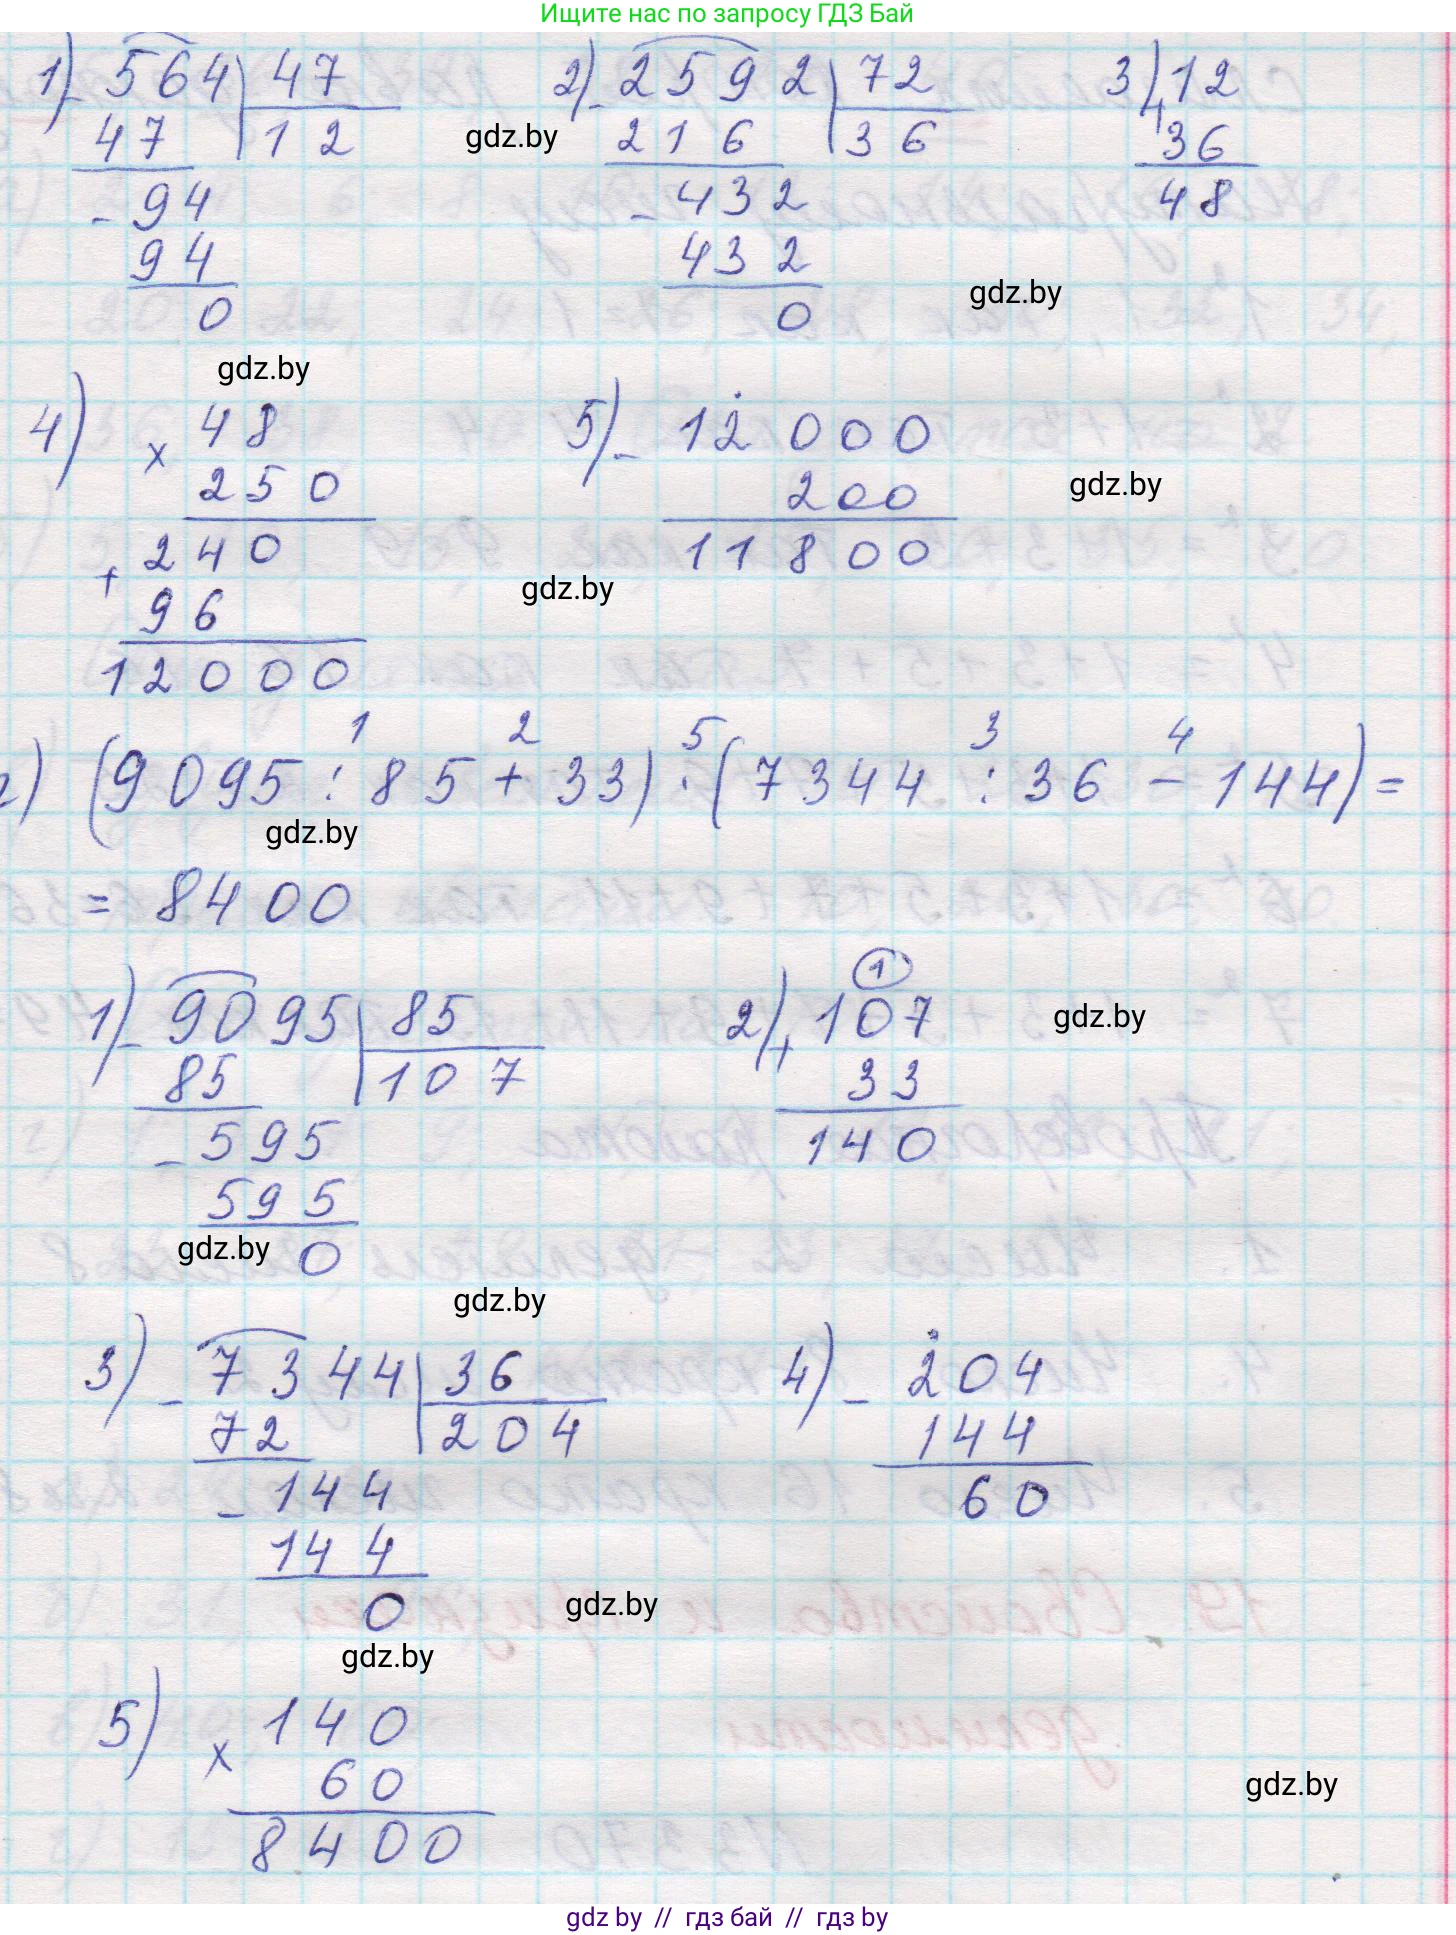 Ищите нас по запросу ГДЗ Бай
1) - 564 | 47
47 | 12
- 94
94
0
2) - 2592 | 72
216 | 36
- 432
432
0
3) + 12
36
48
gdz.by
gdz.by
gdz.by
4) × 48
250
+ 240
96
12000
5) - 12000
200
11800
gdz.by
gdz.by
1 2 5 3 4
г) (9095 : 85 + 33) · (7344 : 36 - 144) =
gdz.by
= 8400
1) - 9095 | 85
85 | 107
- 595
595
0
1
2) + 107
33
140
gdz.by
gdz.by
gdz.by
3) - 7344 | 36
72 | 204
- 144
144
0
4) - 204
144
60
gdz.by
gdz.by
5) × 140
60
8400
gdz.by
gdz by // гдз бай // гдз by